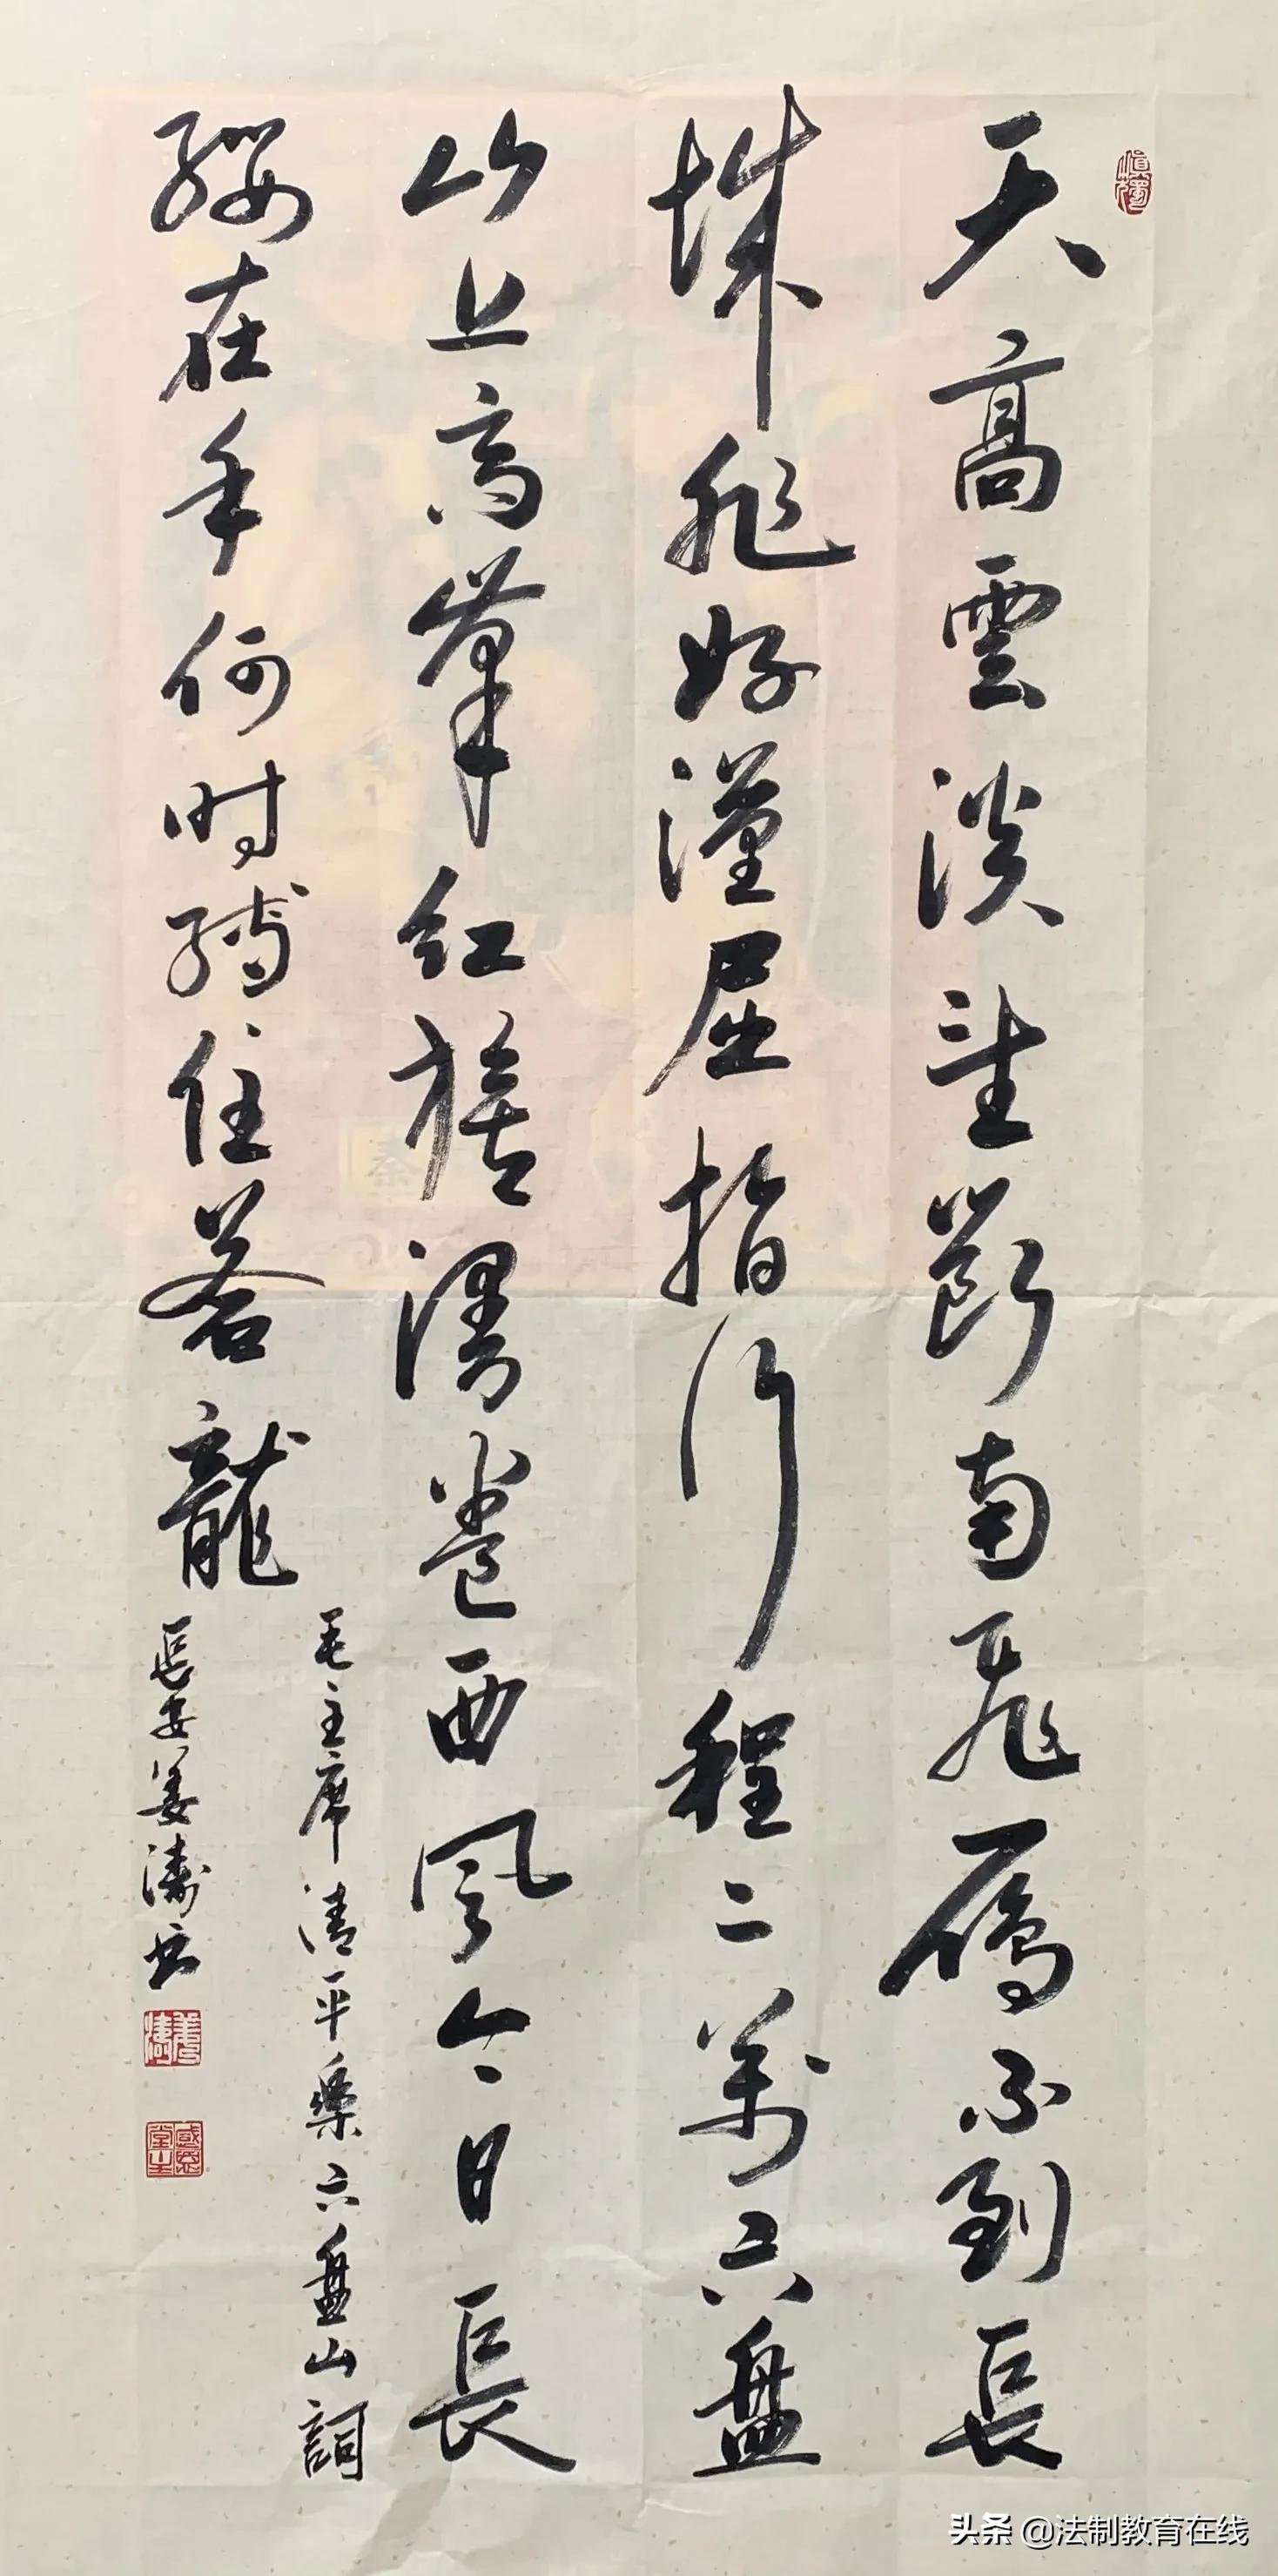 天高雲淡望斷南飛雁不到長
城非好漢屈指行程二萬六盤
山上高峰紅旗漫卷西風今日長
纓在手何時縛住蒼龍
毛主席清平樂六盤山詞
長安姜濤书
头条 @法制教育在线